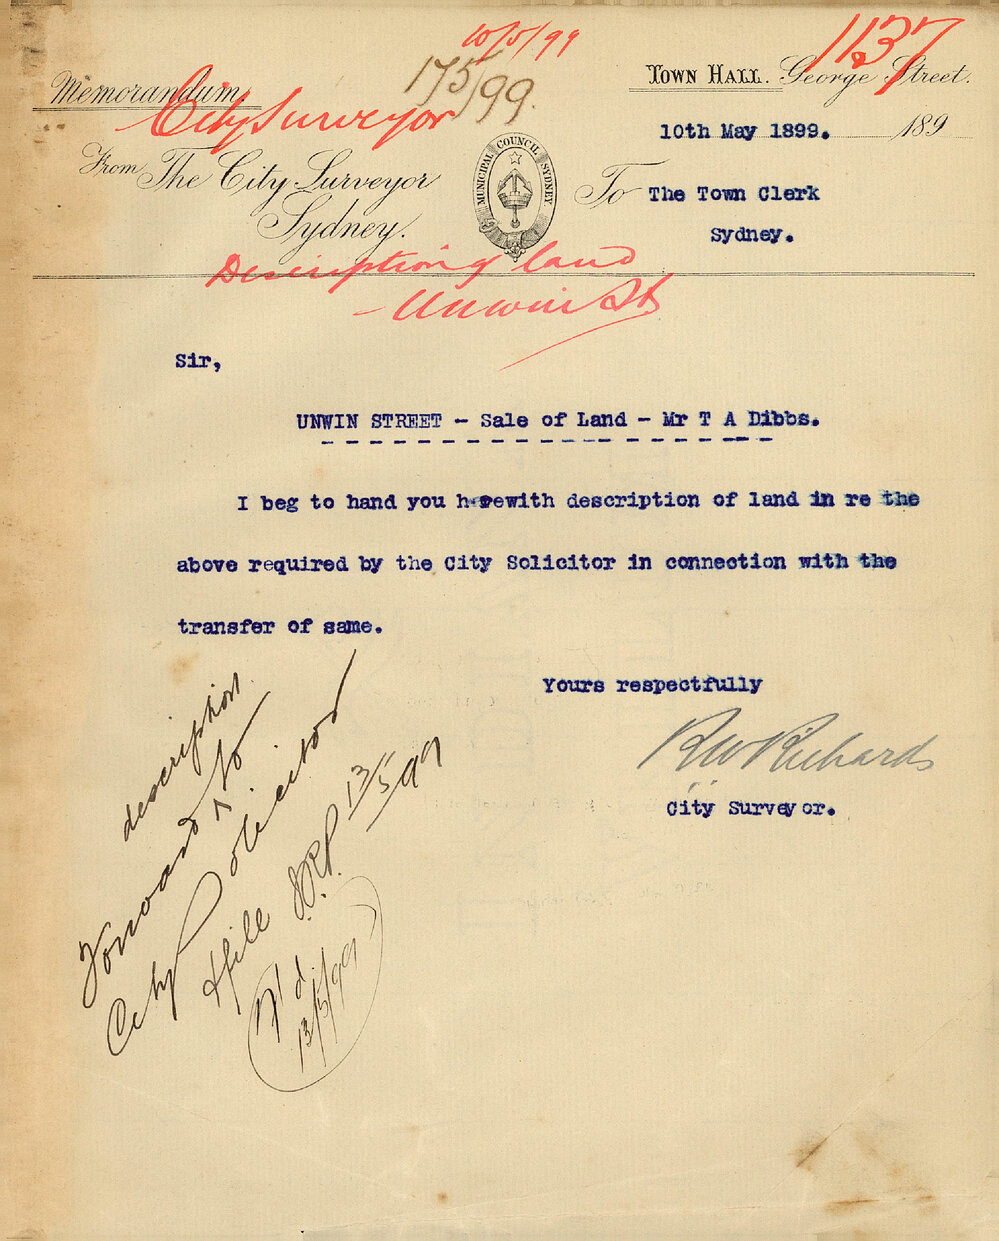 10/5/99
1137
175/99.
TOWN HALL. George Street.
Memorandum
City Surveyor
10th May 1899. 189
From The City Surveyor
Sydney.
MUNICIPAL COUNCIL SYDNEY
To The Town Clerk
Sydney.
Description of land
- Unwin St.
Sir,
UNWIN STREET - Sale of Land - Mr T A Dibbs.
I beg to hand you herewith description of land in re the
above required by the City Solicitor in connection with the
transfer of same.
Yours respectfully
RW Richards
City Surveyor.
description
Forward ^ to
City Solicitor
& file
13/5/99
13/5/99